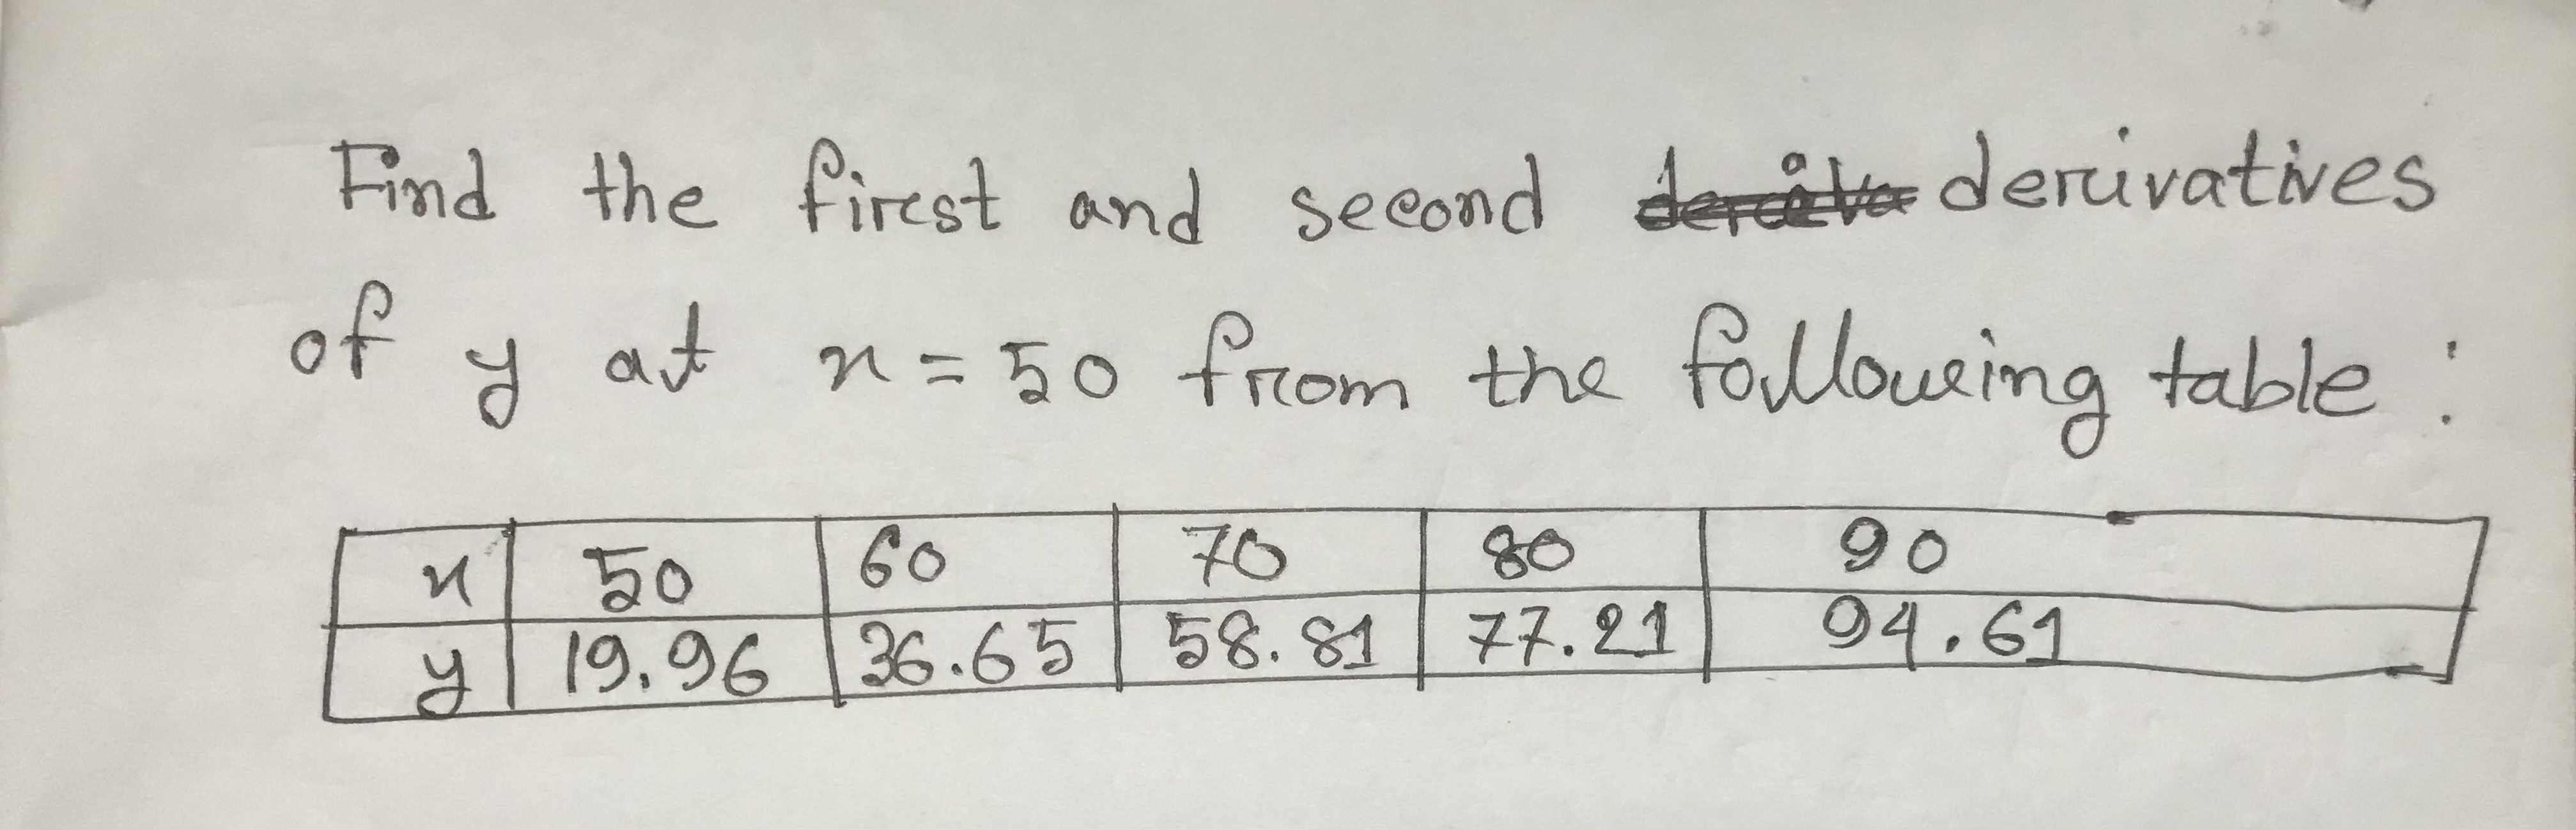 Find the first and second derivatives
of y at x = 50 from the following table :
x 50 60 70 80 90
y 19.96 36.65 58.81 77.21 94.61